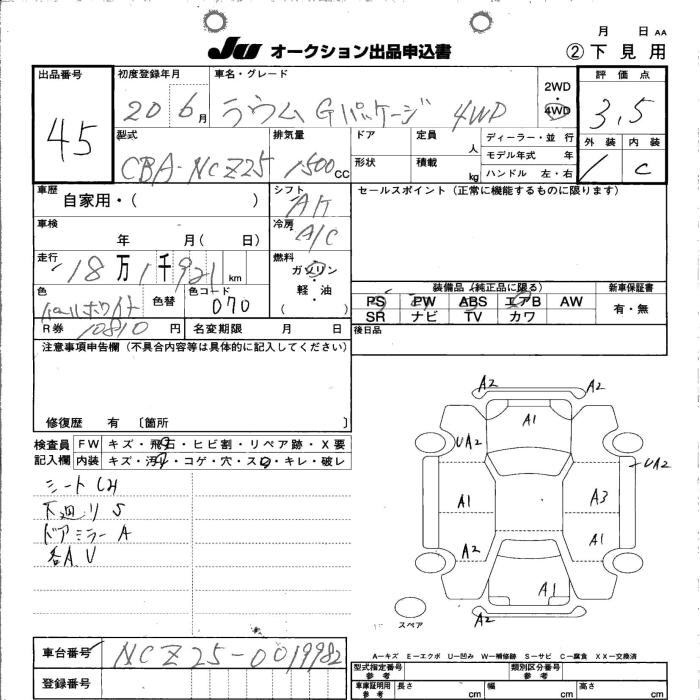 月 日 AA
JU オークション出品申込書 ② 下見用
出品番号 初度登録年月 車名・グレード 評価点
45 20 6月 ラウム Gパッケージ 4WD 2WD・4WD 3.5
型式 排気量 ドア 定員 人 ディーラー・並行 外装 内装
CBA-NCZ25 1500cc 形状 積載 kg モデル年式 年 1 C
ハンドル 左・右
車歴 自家用・( ) シフト AT セールスポイント (正常に機能するものに限ります)
車検 年 月( 日) 冷房 A/C
走行 18万1千921km 燃料 ガソリン・軽油 ( )
装備品 (純正品に限る) 新車保証書
色 パールホワイト 色替 色コード 070
PS PW ABS エアB AW 有・無
SR ナビ TV カワ
R券 10810円 名変期限 月 日 後日品
注意事項申告欄 (不具合内容等は具体的に記入してください)
修復歴 有 〔箇所 〕
検査員 FW キズ・飛石・ヒビ割・リペア跡・X要
記入欄 内装 キズ・汚れ・コゲ・穴・スレ・キレ・破レ
シート
下廻り S
ドアミラー A
各A.U
A2 A2
A1
UA2 UA2
A1 A3
A2 A1
A1
A2 A2
スペア
A－キズ E－エクボ U－凹み W－補修跡 S－サビ C－腐食 XX－交換済
車台番号 NCZ25-0019982
型式指定番号 参考 類別区分番号 参考
登録番号 車庫証明用 参考 長さ cm 幅 cm 高さ cm